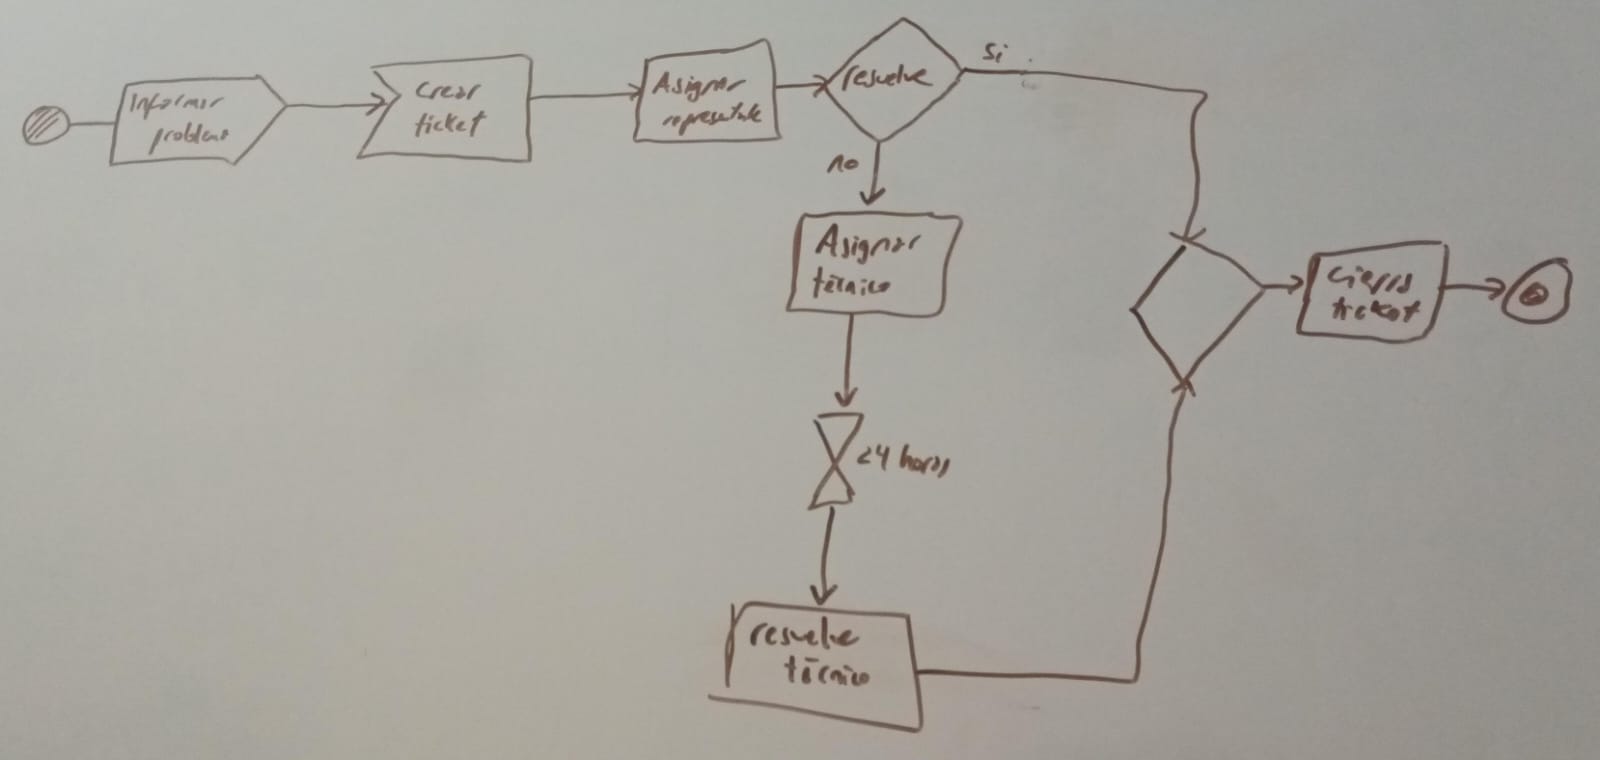 Informar
problema
crear
ticket
Asignar
resuelve
si
no
Asignar
técnico
24 horas
resuelve
técnico
cierra
ticket